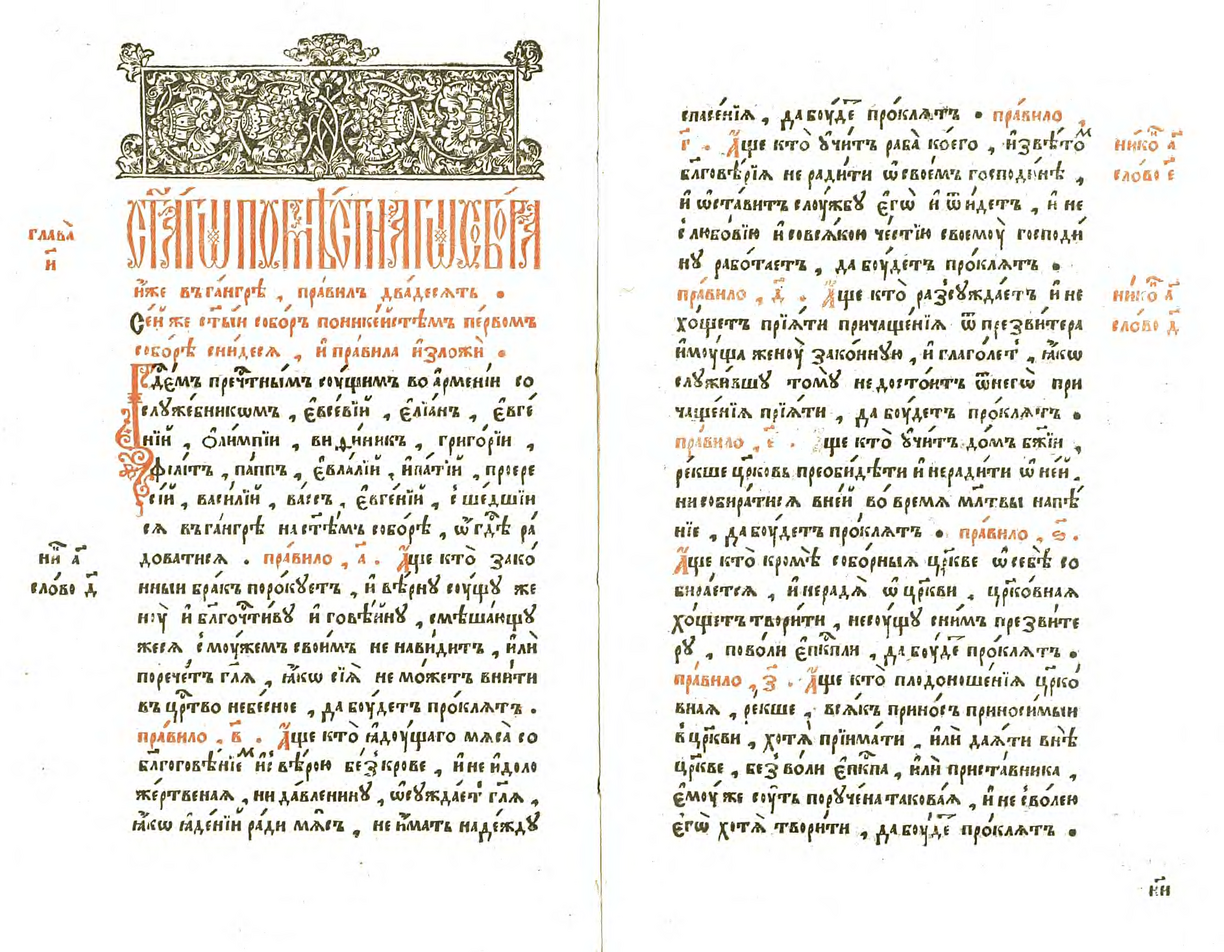 глава̀
и҃
ст҃а́гѡ помѣ́стнагѡ собо́ра
и҆́же въга́нгрѣ , пра́вилъ два́десѧть .
Се́й же ст҃ы́и собо́ръ поникеи́стѣмъ пе́рвомъ
собо́рѣ сни́десѧ , и҆ пра́вила и҆зложѝ .
Гдⷭ҇е́мъ пречⷭ҇тнымъ соу́щимъ во а҆рме́нїи со
слꙋже́бникѡмъ , є҆ѵсе́вїй , є҆лїа́нъ , є҆ѵге́
нїй , ѻ҆ли́мпїи , виѳи́никъ , григо́рїи ,
фили́тъ , па́ппъ , є҆ѵла́лїй , и҆па́тїй , проере́
сїй , васи́лїй , ва́ссъ , є҆ѵге́нїй , сше́дшїи
сѧ въга́нгрѣ настⷪ҇ѣ́мъ собо́рѣ , ѡ҆ гдⷭ҇ѣ ра́
доватисѧ . пра́вило , а҃ . А҆́ще кто̀ зако́
нныи бра́къ порокꙋ́етъ , и҆ вѣ́рнꙋ соу́щꙋ же
нꙋ̀ и҆ блг҃очⷭ҇ти́вꙋ и҆ говѣ́йнꙋ , смѣша́ющꙋ
жесѧ с̾моу́жемъ свои́мъ не нави́дитъ , и҆лѝ
поре́четъ гл҃ѧ , ꙗ҆́кѡ сїѧ̀ не мо́жетъ вни́ти
въ црⷭ҇тво небе́сное , да боу́детъ про́клѧтъ .
пра́вило , в҃ . А҆́ще кто̀ ꙗ҆доу́щаго мѧ́са со
блг҃оговѣ́нїеⷨ и҆с вѣ́рою бе́з̾ кро́ве , и҆ не и҆́доло
же́ртвенаѧ , ни да́вленинꙋ , ѡ҆сꙋжда́етъ гл҃ѧ ,
ꙗ҆́кѡ ꙗ҆де́нїй ра́ди мѧ́съ , не и҆́мать наде́ждꙋ
ниⷦ҇ а҃
сло́во д҃
спасе́нїѧ , да боу́деⷮ про́клѧтъ . пра́вило ,
г҃ . А҆́ще кто̀ ꙋ҆чи́тъ раба̀ ко́его , и҆звѣ́тоⷨ
блг҃овѣ́рїѧ не ради́ти ѡ҆ свое́мъ господи́нѣ ,
и҆ ѡ҆ста́витъ слоу́жбꙋ є҆гѡ̀ и҆ ѿи́детъ , и҆ не
с̾ любо́вїю и҆ совсѧ́кою че́стїю своемоу̀ господи́
нꙋ рабо́таетъ , да боу́детъ про́клѧтъ .
пра́вило , д҃ . А҆́ще кто̀ раз̾сꙋжда́етъ и҆ не
хо́щетъ прїѧ́ти причаще́нїѧ ѿ презви́тера
и҆моу́ща женоу̀ зако́ннꙋю , и҆ глаго́летъ , ꙗ҆́кѡ
слꙋжи́вшꙋ томꙋ̀ не досто́итъ ѿнегѡ̀ при
чаще́нїѧ прїѧ́ти , да боу́детъ про́клѧтъ .
пра́вило , е҃ . А҆́ще кто̀ ꙋ҆чи́тъ до́мъ бж҃їи ,
ре́кше цр҃ковь преоби́дѣти и҆ неради́ти ѡ҆ не́й ,
ни собира́тисѧ вне́й во вре́мѧ мл҃твы на пѣ́
нїе , да боу́детъ про́клѧтъ . пра́вило , ѕ҃ .
А҆́ще кто̀ кромѣ̀ собо́рныѧ цр҃кве ѡ҆ себѣ̀ со
бира́етсѧ , и҆ нерадѧ̀ ѡ҆ цр҃кви , цр҃ко́внаѧ
хо́щетъ твори́ти , несоу́щꙋ сни́мъ презви́те
рꙋ , по во́ли є҆пⷭ҇кпли , да боу́деⷮ про́клѧтъ .
пра́вило , з҃ . А҆́ще кто̀ плодоноше́нїѧ цр҃ко́
внаѧ , ре́кше , всѧ́къ прино́съ приноси́мыи
в̾ цр҃кви , хотѧ̀ прїима́ти , и҆лѝ даѧ́ти внѣ̀
цр҃кве , без̾ во́ли є҆пⷭ҇кпа , и҆лѝ приста́вника ,
є҆моу́ же соу́ть порꙋче́на такова́ѧ , и҆ не с̾во́лею
є҆гѡ̀ хотѧ̀ твори́ти , да боу́деⷮ про́клѧтъ .
нико́ⷩ҇ а҃
сло́во е҃
нико́ⷩ҇ а҃
сло́во д҃
к҃и